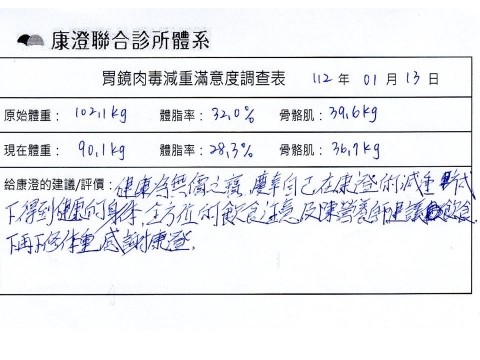 康澄聯合診所體系
胃鏡肉毒減重滿意度調查表 112 年 01 月 13 日
原始體重： 102.1kg 體脂率： 32.0% 骨骼肌： 39.6kg
現在體重： 90.1kg 體脂率： 28.3% 骨骼肌： 36.7kg
給康澄的建議/評價： 健康為無價之寶, 慶幸自己在康澄的減重
下得到健康的身体, 全方位的飲食注意及陳營養師建議飲食
下再下降体重, 感謝康澄.